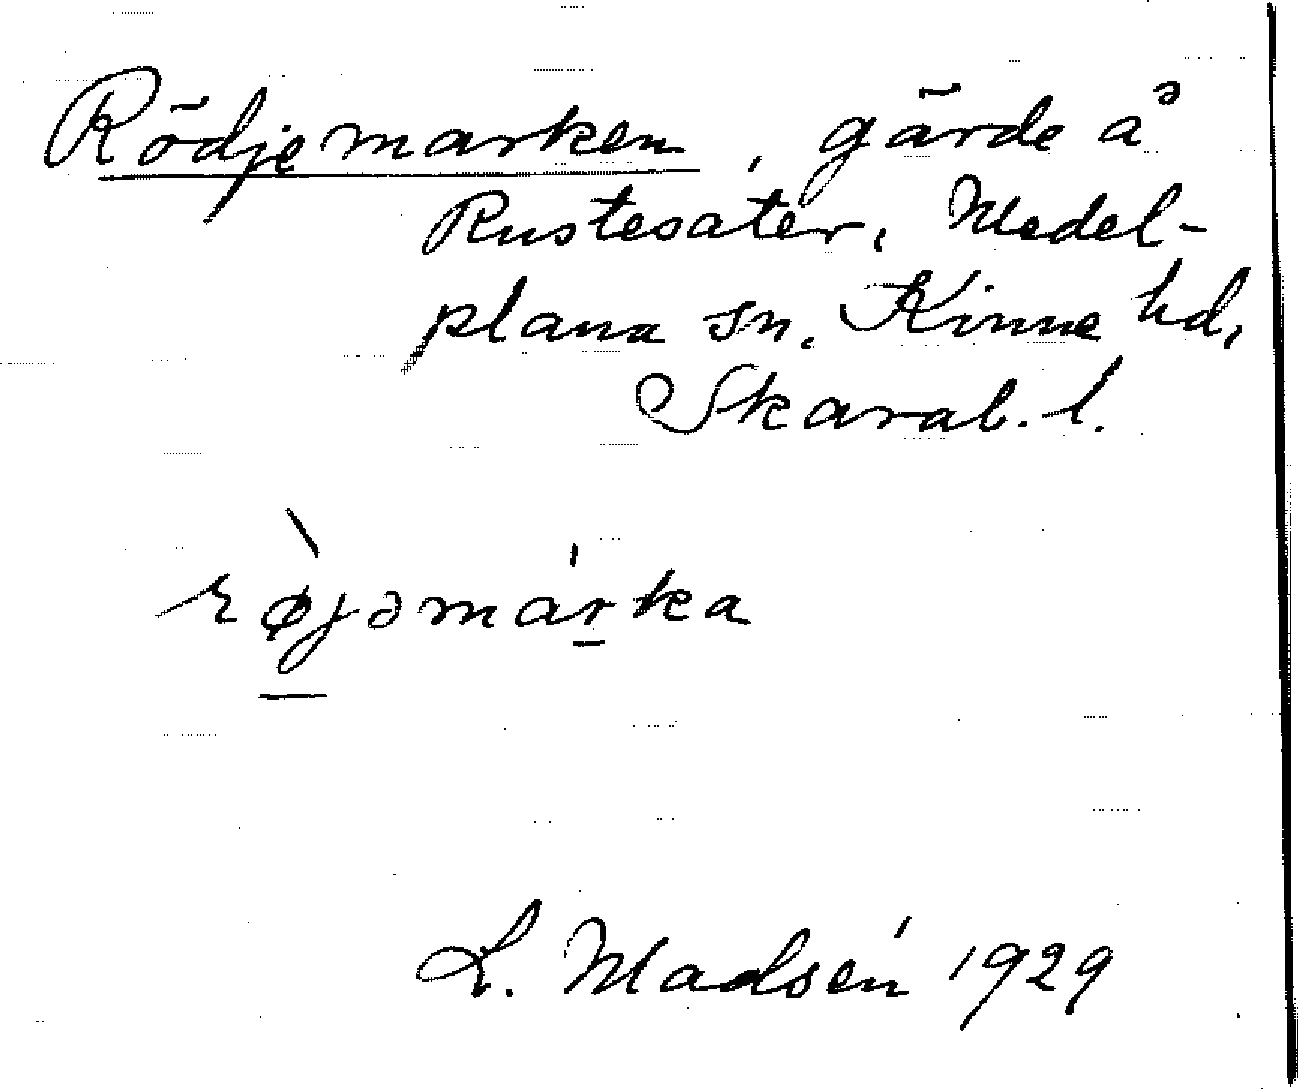 Rödjemarken, gärde å
Rustesäter, Medel-
plana sn. Kinne hd,
Skarab. l.
rø̀jəmárka
L. Madsén 1929